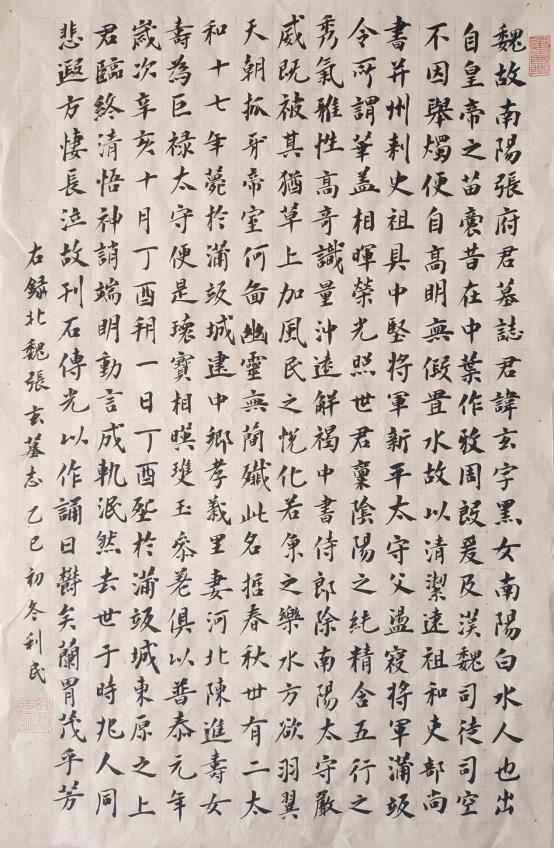 魏故南陽張府君墓誌君諱玄字黑女南陽白水人也出
自皇帝之苗裔昔在中葉作牧周殷爰及漢魏司徒司空
不因舉燭便自高明無假置水故以清潔遠祖和吏部尚
書并州刺史祖具中堅將軍新平太守父盪寇將軍蒲坂
令所謂華蓋相暉榮光照世君稟陰陽之純精含五行之
秀氣雅性高奇識量沖遠解褐中書侍郎除南陽太守嚴
威既被其猶草上加風民之悅化若魚之樂水方欲羽翼
天朝抓牙帝室何啚幽靈無簡殲此名哲春秋卅有二太
和十七年薨於蒲坂城建中鄉孝義里妻河北陳進壽女
壽為巨祿太守便是瓌寶相暎雙玉參差俱以普泰元年
歲次辛亥十月丁酉朔一日丁酉塟於蒲坂城東原之上
君臨終清悟神誚端明動言成軌泯然去世于時兆人同
悲遐方悽長泣故刊石傳光以作誦曰欝矣蘭胃茂乎芳
右錄北魏張玄墓志 乙巳初冬利民